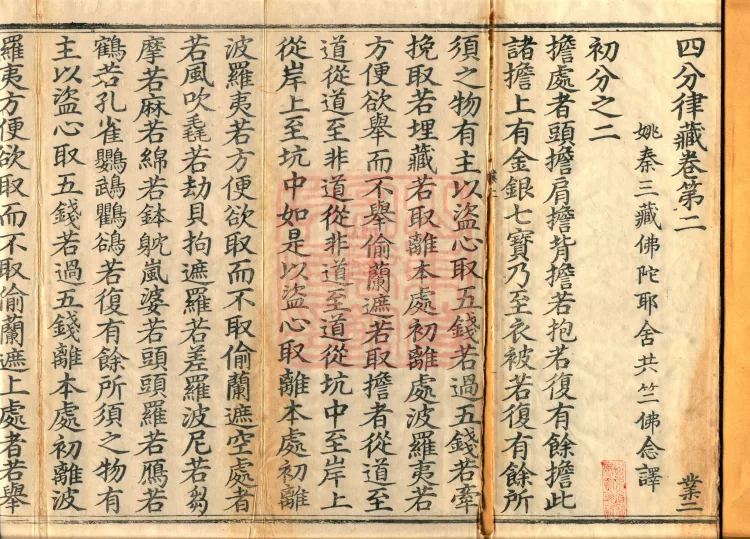 四分律藏卷第二
業二
姚秦三藏佛陀耶舍共竺佛念譯
初分之二
擔處者頭擔肩擔背擔若抱若復有餘擔此
諸擔上有金銀七寶乃至衣被若復有餘所
須之物有主以盜心取五錢若過五錢若牽
挽取若埋藏若取離本處初離處波羅夷若
方便欲舉而不舉偷蘭遮若取擔者從道至
道從道至非道從非道至道從坑中至岸上
從岸上至坑中如是以盜心取離本處初離
波羅夷若方便欲取而不取偷蘭遮空處者
若風吹毳若劫貝拘遮羅若差羅波尼若芻
摩若麻若綿若鉢躭嵐婆若頭頭羅若鴈若
鶴若孔雀鸚鵡鸜鵒若復有餘所須之物有
主以盜心取五錢若過五錢離本處初離波
羅夷方便欲取而不取偷蘭遮上處者若舉